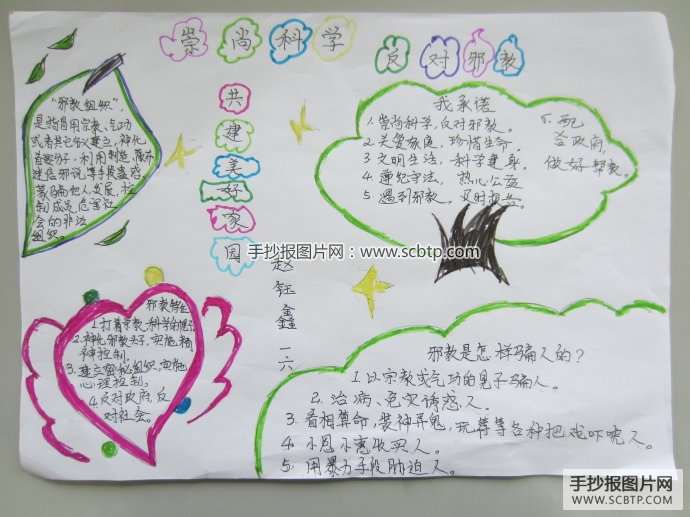 崇尚科学
反对邪教
共建美好家园
"邪教组织",
是指冒用宗教、气功
或者其它名义建立,神化
首要分子,利用制造、散布
迷信邪说等手段蛊惑、
蒙骗他人,发展、控
制成员,危害社
会的非法
组织。
我承诺
1.崇尚科学,反对邪教。
2.关爱家庭,珍惜生命。
3.文明生活,科学健身。
4.遵纪守法,热心公益
5.遇到邪教,及时报告。
6.配
合政府,
做好帮教。
手抄报图片网:www.scbtp.com
赵钰鑫 一六
邪教特征
1.打着宗教科学的幌子
2.神化邪教头子,实施精
神控制。
3.建立秘密组织,实施
心理控制。
4.反对政府,反
对社会。
邪教是怎样骗人的?
1.以宗教或气功的鬼子骗人。
2.治病、免灾诱惑人。
3.看相算命,装神弄鬼,玩等等各种把戏吓唬人。
4.小恩小惠收买人。
5.用暴力手段胁迫人。
手抄报图片网
WWW.SCBTP.COM